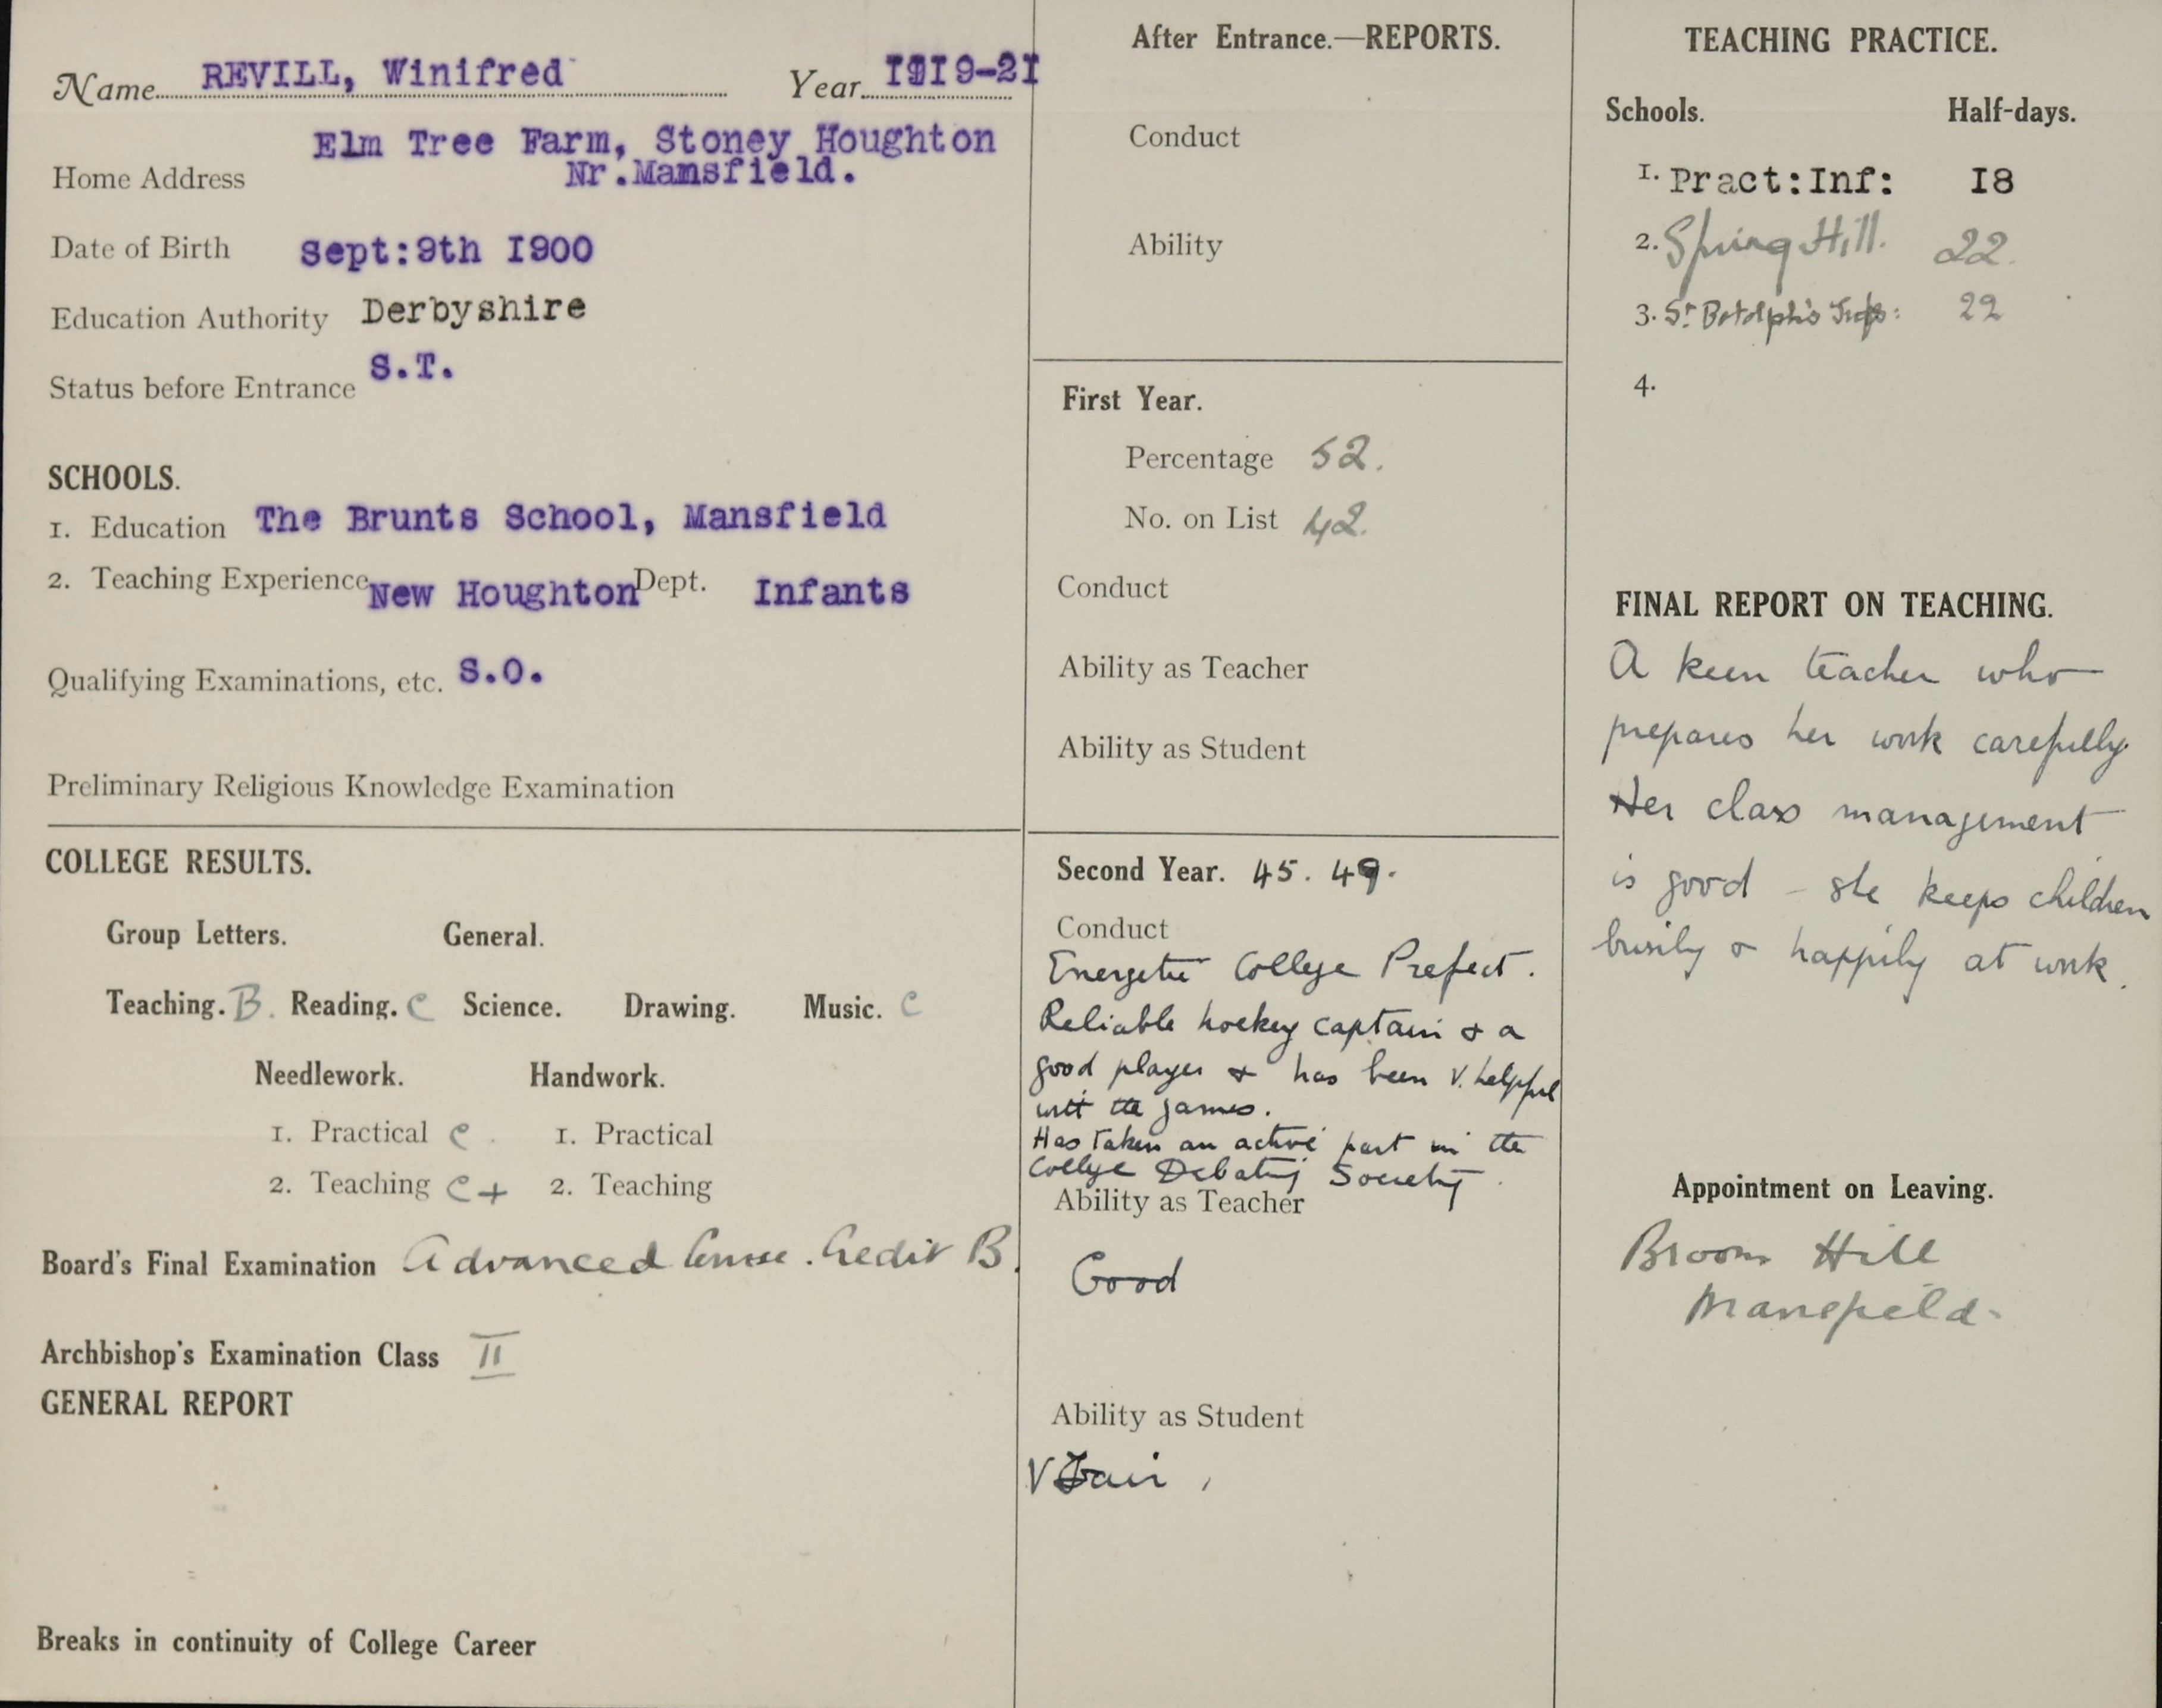 Name REVILL, Winifred Year I9I9-2I
Elm Tree Farm, Stoney Houghton
Home Address Nr.Mansfield.
Date of Birth Sept:9th I900
Education Authority Derbyshire
Status before Entrance S.T.
SCHOOLS.
1. Education The Brunts School, Mansfield
2. Teaching Experience New Houghton Dept. Infants
Qualifying Examinations, etc. S.O.
Preliminary Religious Knowledge Examination
COLLEGE RESULTS.
Group Letters. General.
Teaching. B. Reading. C Science. Drawing. Music. C
Needlework. Handwork.
1. Practical C. 1. Practical
2. Teaching C+ 2. Teaching
Board's Final Examination Advanced Course. Credit B.
Archbishop's Examination Class II
GENERAL REPORT
Breaks in continuity of College Career
After Entrance.—REPORTS.
Conduct
Ability
First Year.
Percentage 52.
No. on List 42.
Conduct
Ability as Teacher
Ability as Student
Second Year. 45. 49.
Conduct
Energetic College Prefect.
Reliable hockey captain & a
good player & has been V. helpful
with the games.
Has taken an active part in the
College Debating Society.
Ability as Teacher
Good
Ability as Student
V Fair
TEACHING PRACTICE.
Schools. Half-days.
1. Pract:Inf: I8
2. Spring Hill. 22.
3. St Botolph's Infs: 22
4.
FINAL REPORT ON TEACHING.
A keen teacher who
prepares her work carefully.
Her class management
is good - she keeps children
busily & happily at work.
Appointment on Leaving.
Broom Hill
Mansfield.